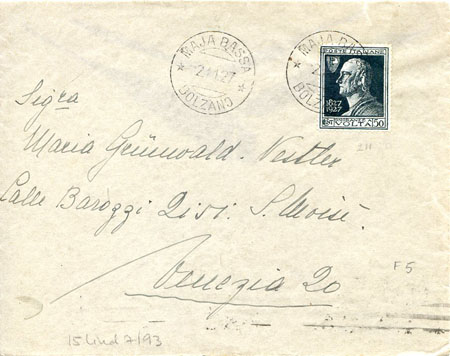 MAJA BASSA
2.1.27
BOLZANO
MAJA BASSA
BOLZANO
POSTE ITALIANE
1827
1927
VOLTA 50
Sigra
Maria Grünwald-Vestler
Calle Barozzi 2151 S. Moisè
Venezia 20
211
F5
15 Lind 7/93